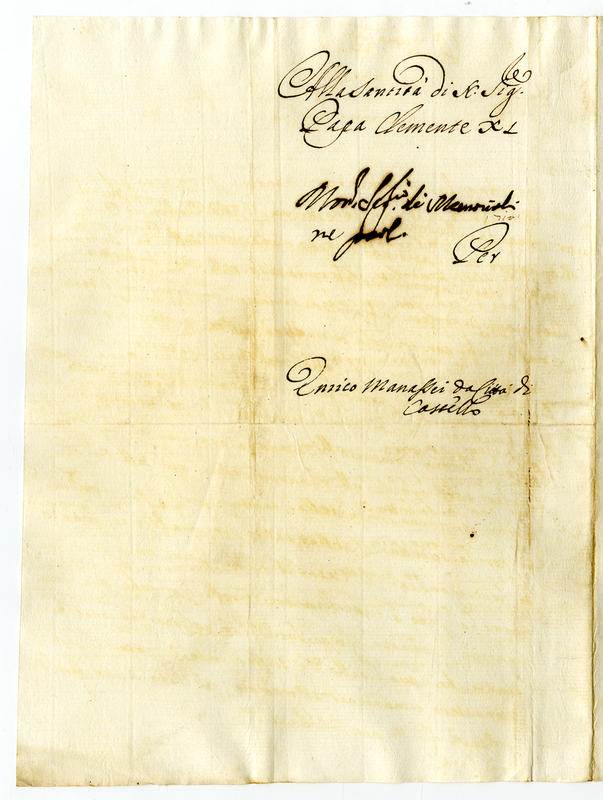 Alla Santità di N. Sig.re
Papa Clemente XI
Mon.r Seg.rio di Memoriali
ne parli
Per
Enrico Manassei da Città di
Castello